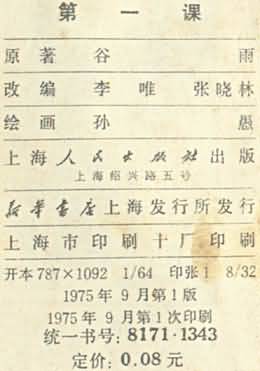 第一课
原著 谷雨
改编 李唯 张晓林
绘画 孙愚
上海人民出版社出版
上海绍兴路五号
新华书店上海发行所发行
上海市印刷十厂印刷
开本787×1092 1/64 印张1 8/32
1975年9月第1版
1975年9月第1次印刷
统一书号:8171·1343
定价:0.08元